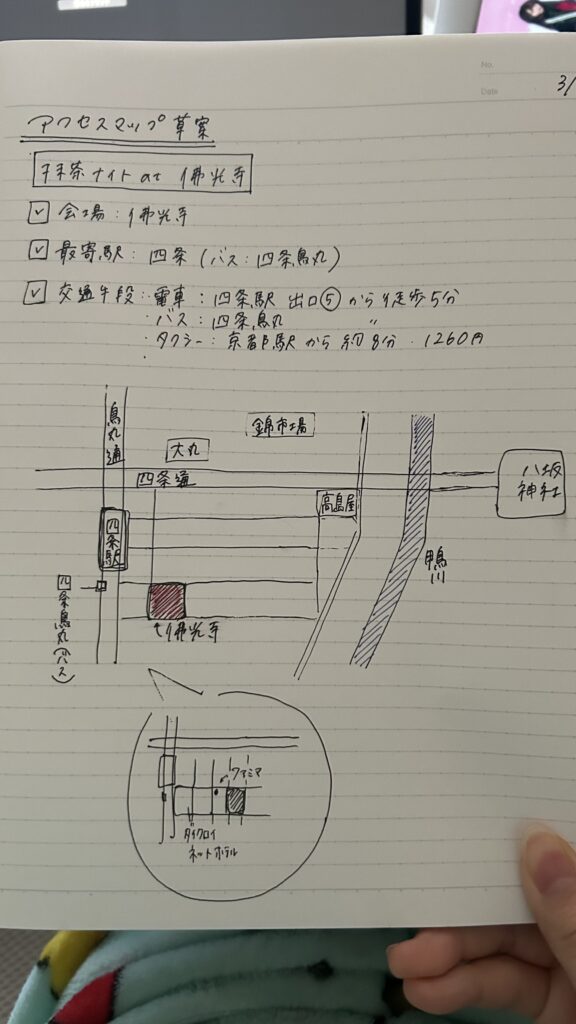 No.
Date 3/
アクセスマップ草案
抹茶ナイト at 佛光寺
会場：佛光寺
最寄駅：四条（バス：四条烏丸）
交通手段：電車：四条駅 出口⑤から徒歩5分
・バス：四条烏丸 〃
・タクシー：京都駅から約8分・1260円
烏丸通
錦市場
大丸
四条通
八坂神社
高島屋
四条駅
鴨川
四条烏丸（バス）
↑佛光寺
ファミマ
ダイワロイ
ネットホテル